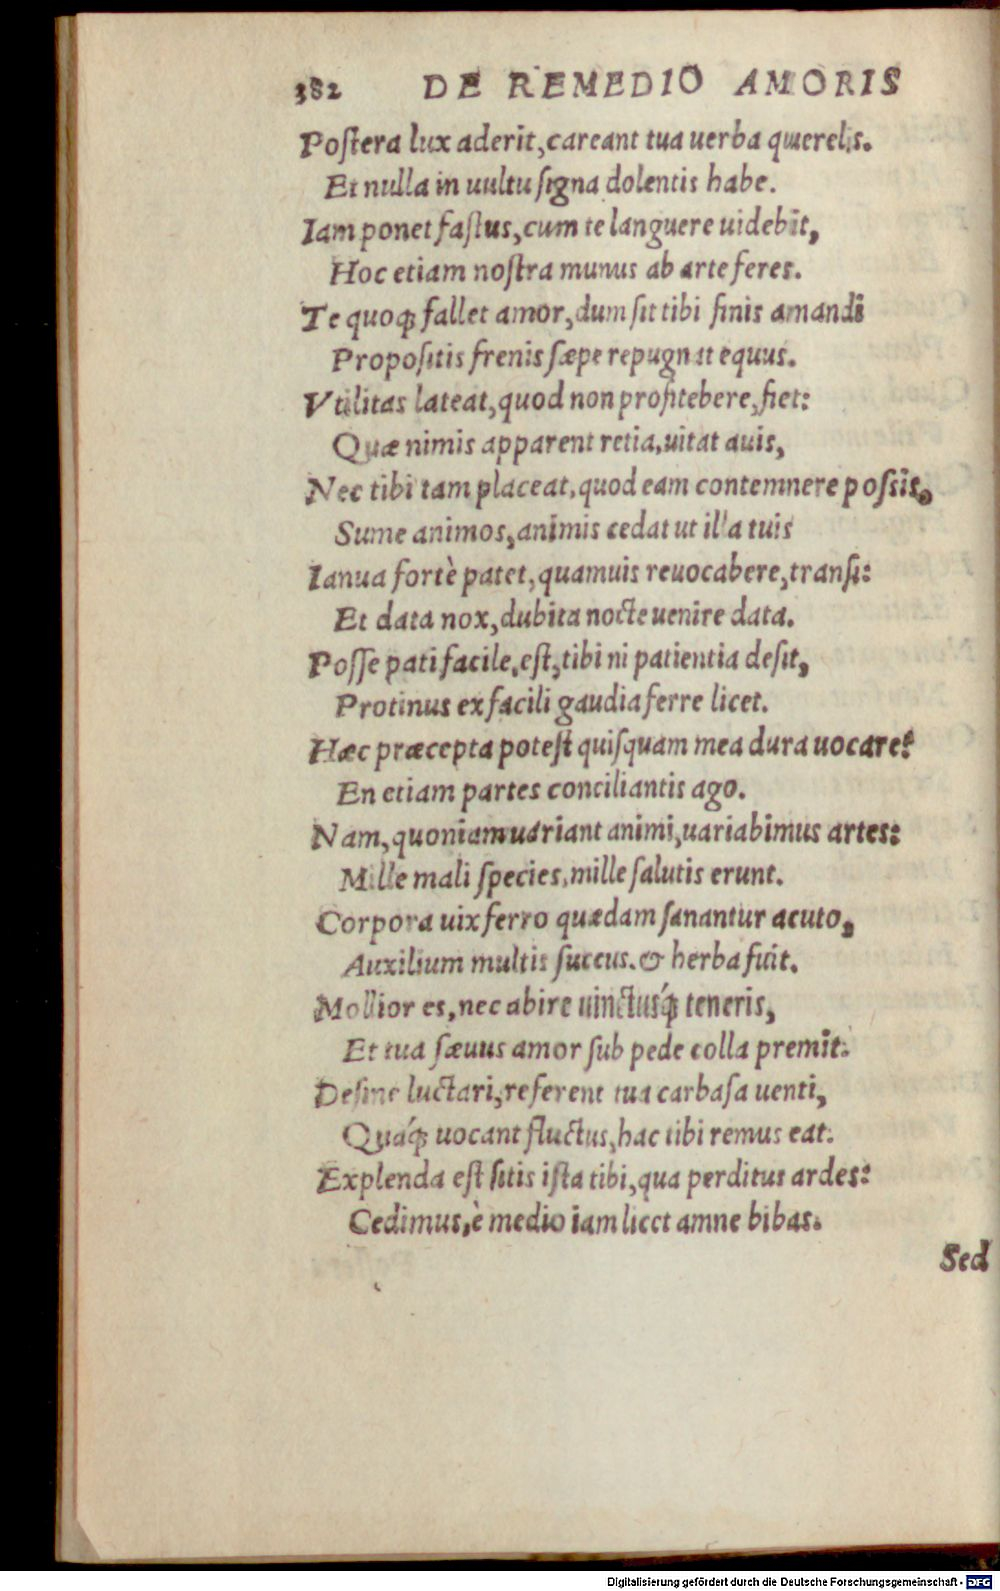 382 DE REMEDIO AMORIS
Poſtera lux aderit, careant tua uerba querelis.
Et nulla in uultu ſigna dolentis habe.
Iam ponet faſtus, cum te languere uidebit,
Hoc etiam noſtra munus ab arte feres.
Te quoq; fallet amor, dum ſit tibi finis amandi
Propoſitis frenis ſæpe repugnat equus.
Vtilitas lateat, quod non profitebere, fiet:
Quæ nimis apparent retia, uitat auis,
Nec tibi tam placeat, quod eam contemnere poſsis,
Sume animos, animis cedat ut illa tuis
Ianua fortè patet, quamuis reuocabere, tranſi:
Et data nox, dubita nocte uenire data.
Poſſe pati facile, eſt, tibi ni patientia deſit,
Protinus ex facili gaudia ferre licet.
Hæc præcepta poteſt quiſquam mea dura uocare?
En etiam partes conciliantis ago.
Nam, quoniam uariant animi, uariabimus artes:
Mille mali ſpecies, mille ſalutis erunt.
Corpora uix ferro quædam ſanantur acuto,
Auxilium multis ſuccus. & herba fuit.
Mollior es, nec abire uinctusq́; teneris,
Et tua ſæuus amor ſub pede colla premit.
Deſine luctari, referent tua carbaſa uenti,
Quáq; uocant fluctus, hac tibi remus eat.
Explenda eſt ſitis iſta tibi, qua perditus ardes:
Cedimus, è medio iam licet amne bibas.
Sed
Digitalisierung gefördert durch die Deutsche Forschungsgemeinschaft - DFG